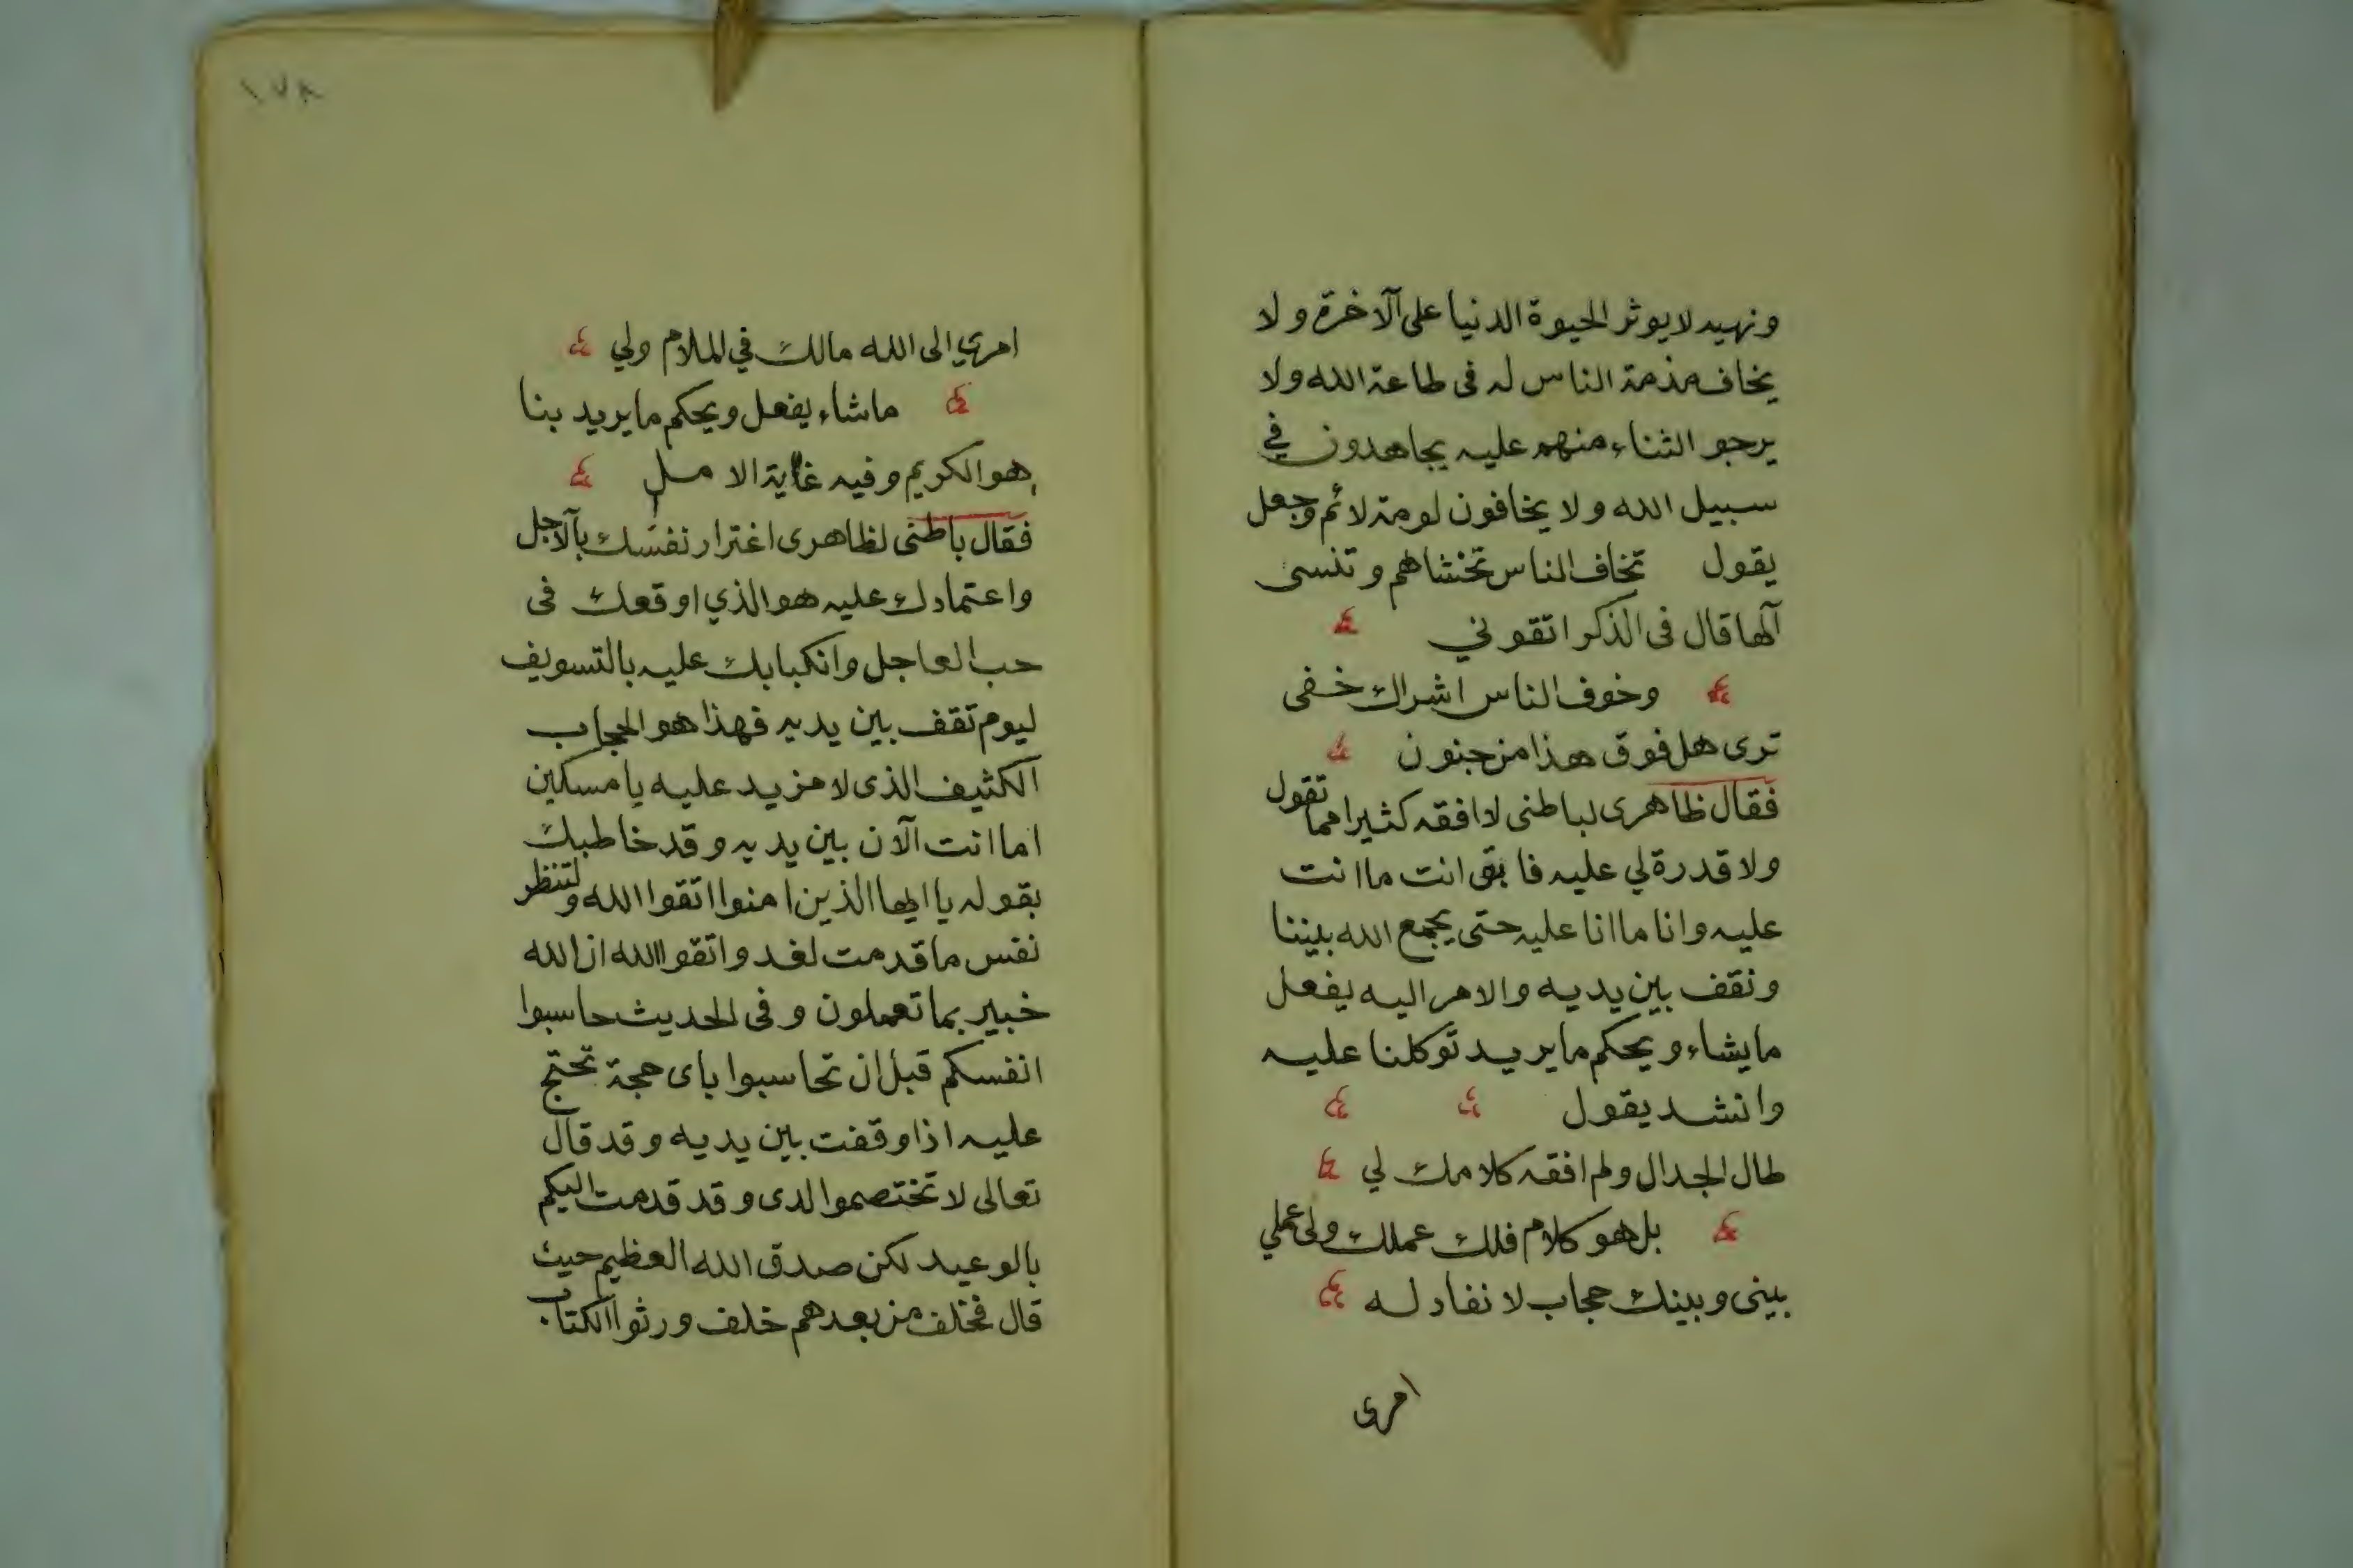 ونهيه لا يوثر الحيوة الدنيا على الآخرة ولا
يخاف مذمة الناس له فى طاعة الله ولا
يرجو الثناء منهم عليه يجاهدون في
سبيل الله ولا يخافون لومة لائم وجعل
يقول تخاف الناس تخشاهم وتنسى
آلها قال فى الذكر اتقوني
وخوف الناس اشراك خفى
ترى هل فوق هذا من جنون
فقال ظاهرى لباطنى لا افقه كثيرا مما تقول
ولا قدرة لي عليه فابقى انت ما انت
عليه وانا ما انا عليه حتى يجمع الله بيننا
ونقف بين يديه والامر اليه يفعل
ما يشاء ويحكم ما يريد توكلنا عليه
وانشد يقول
طال الجدال ولم افقه كلامك لي
بل هو كلام فلك عملك ولى عملي
بينى وبينك حجاب لا نفاد له
امرى
١٧٨
امري الى الله مالك في الملام ولي
ما شاء يفعل ويحكم ما يريد بنا
هو الكريم وفيه غاية الامل
فقال باطنى لظاهرى اغترار نفسك بالآجل
واعتمادك عليه هو الذي اوقعك فى
حب العاجل وانكبابك عليه بالتسويف
ليوم تقف بين يديه فهذا هو الحجاب
الكثيف الذى لا مزيد عليه يا مسكين
اما انت الآن بين يديه وقد خاطبك
بقوله يا ايها الذين امنوا اتقوا الله ولتنظر
نفس ما قدمت لغد واتقوا الله ان الله
خبير بما تعملون وفى الحديث حاسبوا
انفسكم قبل ان تحاسبوا باى حجة تحتج
عليه اذا وقفت بين يديه وقد قال
تعالى لا تختصموا لدى وقد قدمت اليكم
بالوعيد لكن صدق الله العظيم حيث
قال فخلف من بعدهم خلف ورثوا الكتاب